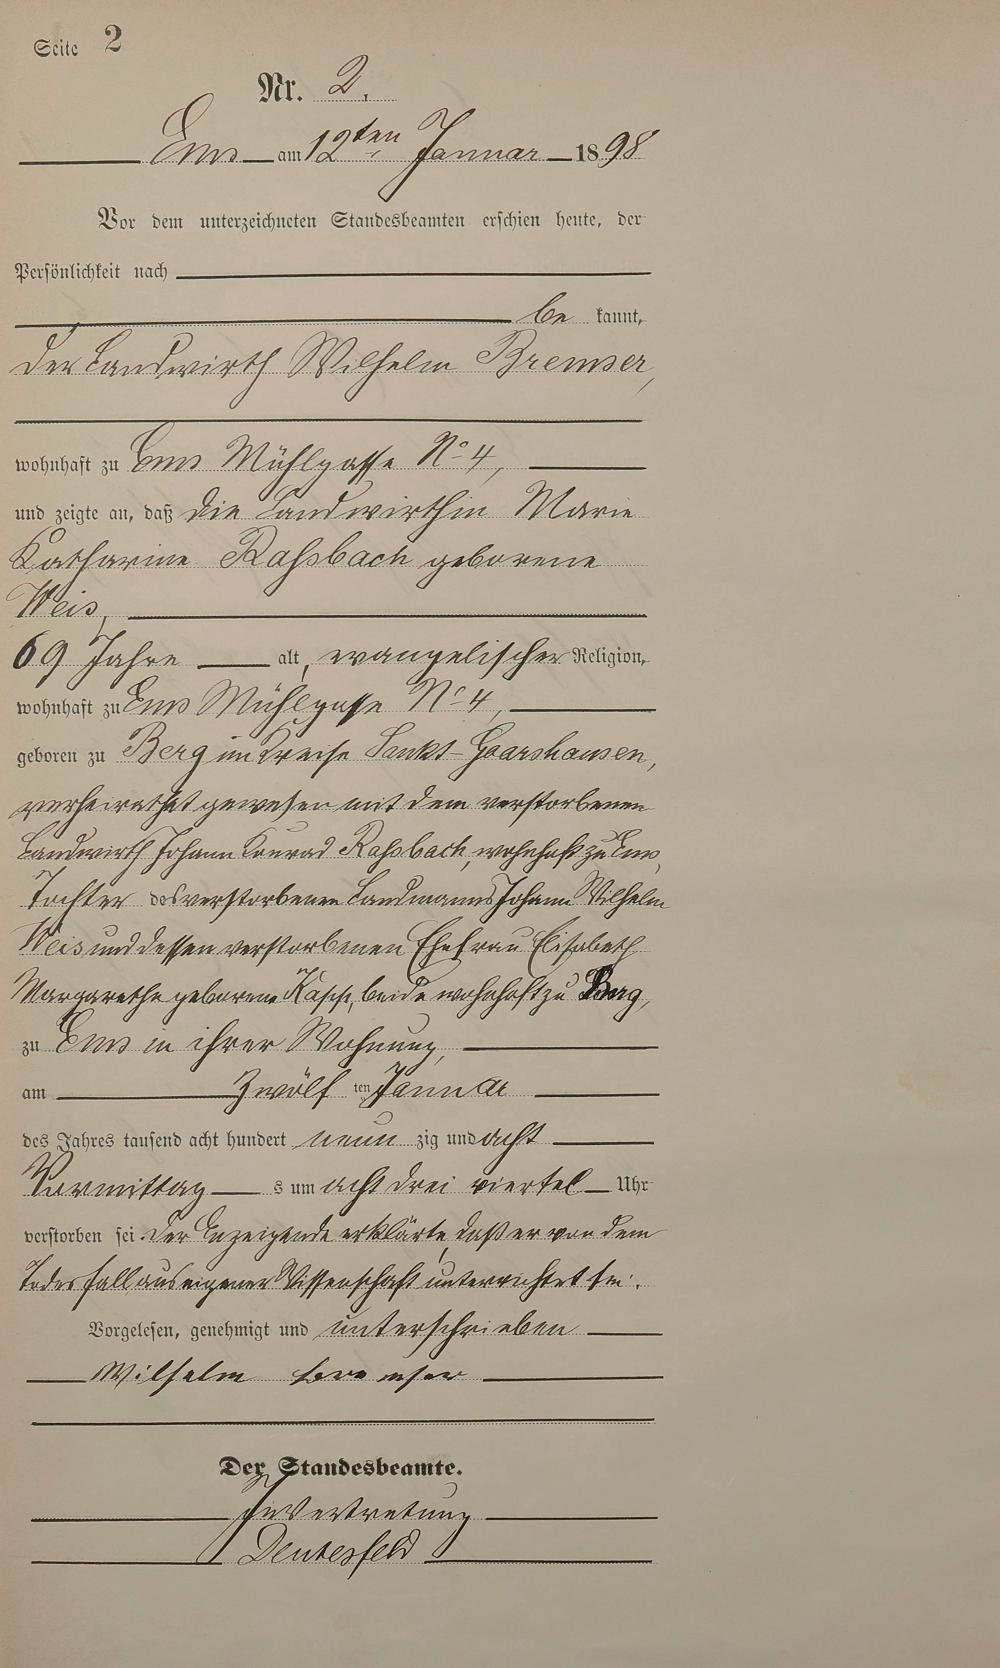 Seite 2
Nr. 2.
Ems am 12ten Januar 1898
Vor dem unterzeichneten Standesbeamten erschien heute, der
Persönlichkeit nach
be kannt,
der Landwirth Wilhelm Bremser,
wohnhaft zu Ems Mühlgasse No 4,
und zeigte an, daß die Landwirthin Marie
Katharine Raßbach geborene
Weis,
69 Jahre alt, evangelischer Religion,
wohnhaft zu Ems Mühlgasse No 4,
geboren zu Berg im Kreise Sankt-Goarshausen,
verheirathet gewesen mit dem verstorbenen
Landwirth Johann Konrad Raßbach, wohnhaft zu Ems,
Tochter des verstorbenen Landmanns Johann Wilhelm
Weis und dessen verstorbenen Ehefrau Elisabeth
Margarethe geborene beide wohnhaft zu Berg,
zu Ems in ihrer Wohnung,
am Zwölf ten Januar
des Jahres tausend acht hundert neun zig und acht
Vormittag s um acht drei viertel Uhr
verstorben sei. Der Anzeigende erklärte, daß er von dem
Todesfall aus eigener Wissenschaft unterrichtet sei.
Vorgelesen, genehmigt und unterschrieben
Wilhelm Bremser
Der Standesbeamte.
In Vertretung
Deutesfeld